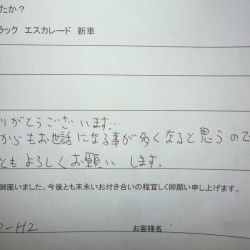 たか？
ラック　エスカレード　新車
りがとうございます．
からもお世話になる事が多くなると思うので
ともよろしくお願い します。
御座いました。今後とも末永いお付き合いの程宜しく御願い申し上げます。
お客様名